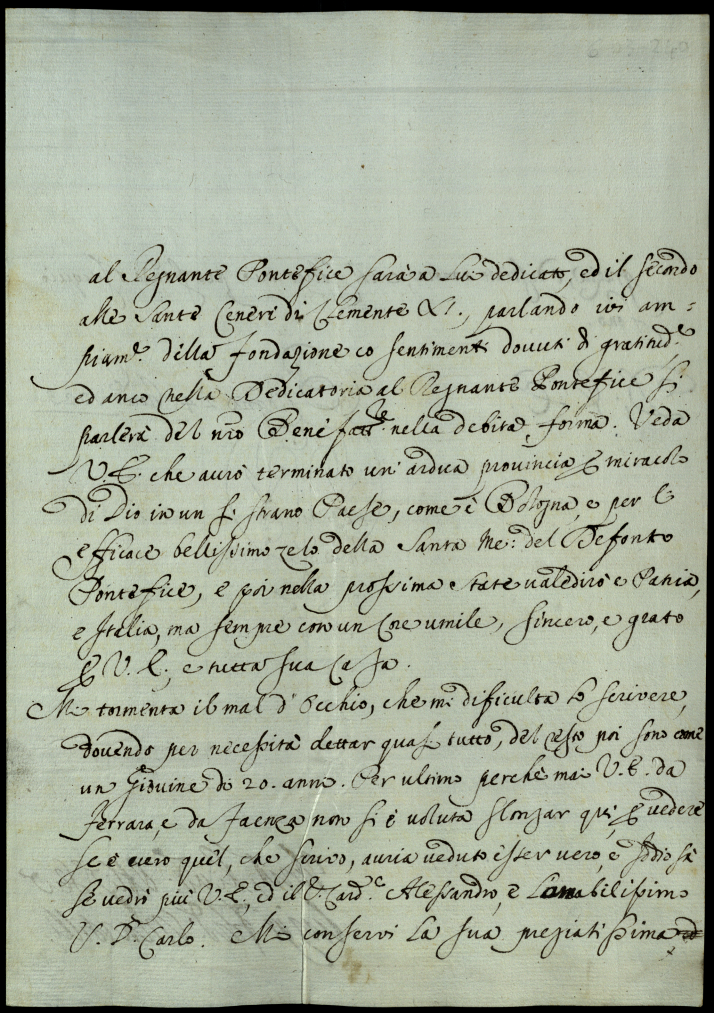 al Regnante Pontefice sarà a Lui dedicato, ed il secondo
alle Sante Ceneri di Clemente XI., parlando ivi am=
piam.te della fondazione co sentimenti dovuti di gratitud.e
ed anco nella Dedicatoria al Regnante Pontefice si
parlerà del nro Benefatt.re nella debita forma. Veda
V.E. che avrò terminato un'ardua provincia p miracolo
di Dio in un sì strano Paese, come è Bologna, e per l'
efficace bellissimo zelo della Santa Me: del Defonto
Pontefice, e poi nella prossima estate valedirò e Patria,
e Italia, ma sempre con un Core umile, sincero, e grato
p V.E., e tutta sua Casa.
Mi tormenta il mal d'Occhio, che mi difficulta lo scrivere,
dovendo per necessità dettar quasi tutto, del resto poi sono come
un Giovine di 20. anni. Per ultimo perchè mai V.E. da
Ferrara, e da Faenza non si è voluta slongar quì, p vedere
se è vero quel, che scrivo, avria veduto esser vero, e Iddio sà
se vedrò più V.E., ed il S. Card.e Alessandro, e L'amabilissimo
S. D. Carlo. Mi conservi la sua pregiatissima